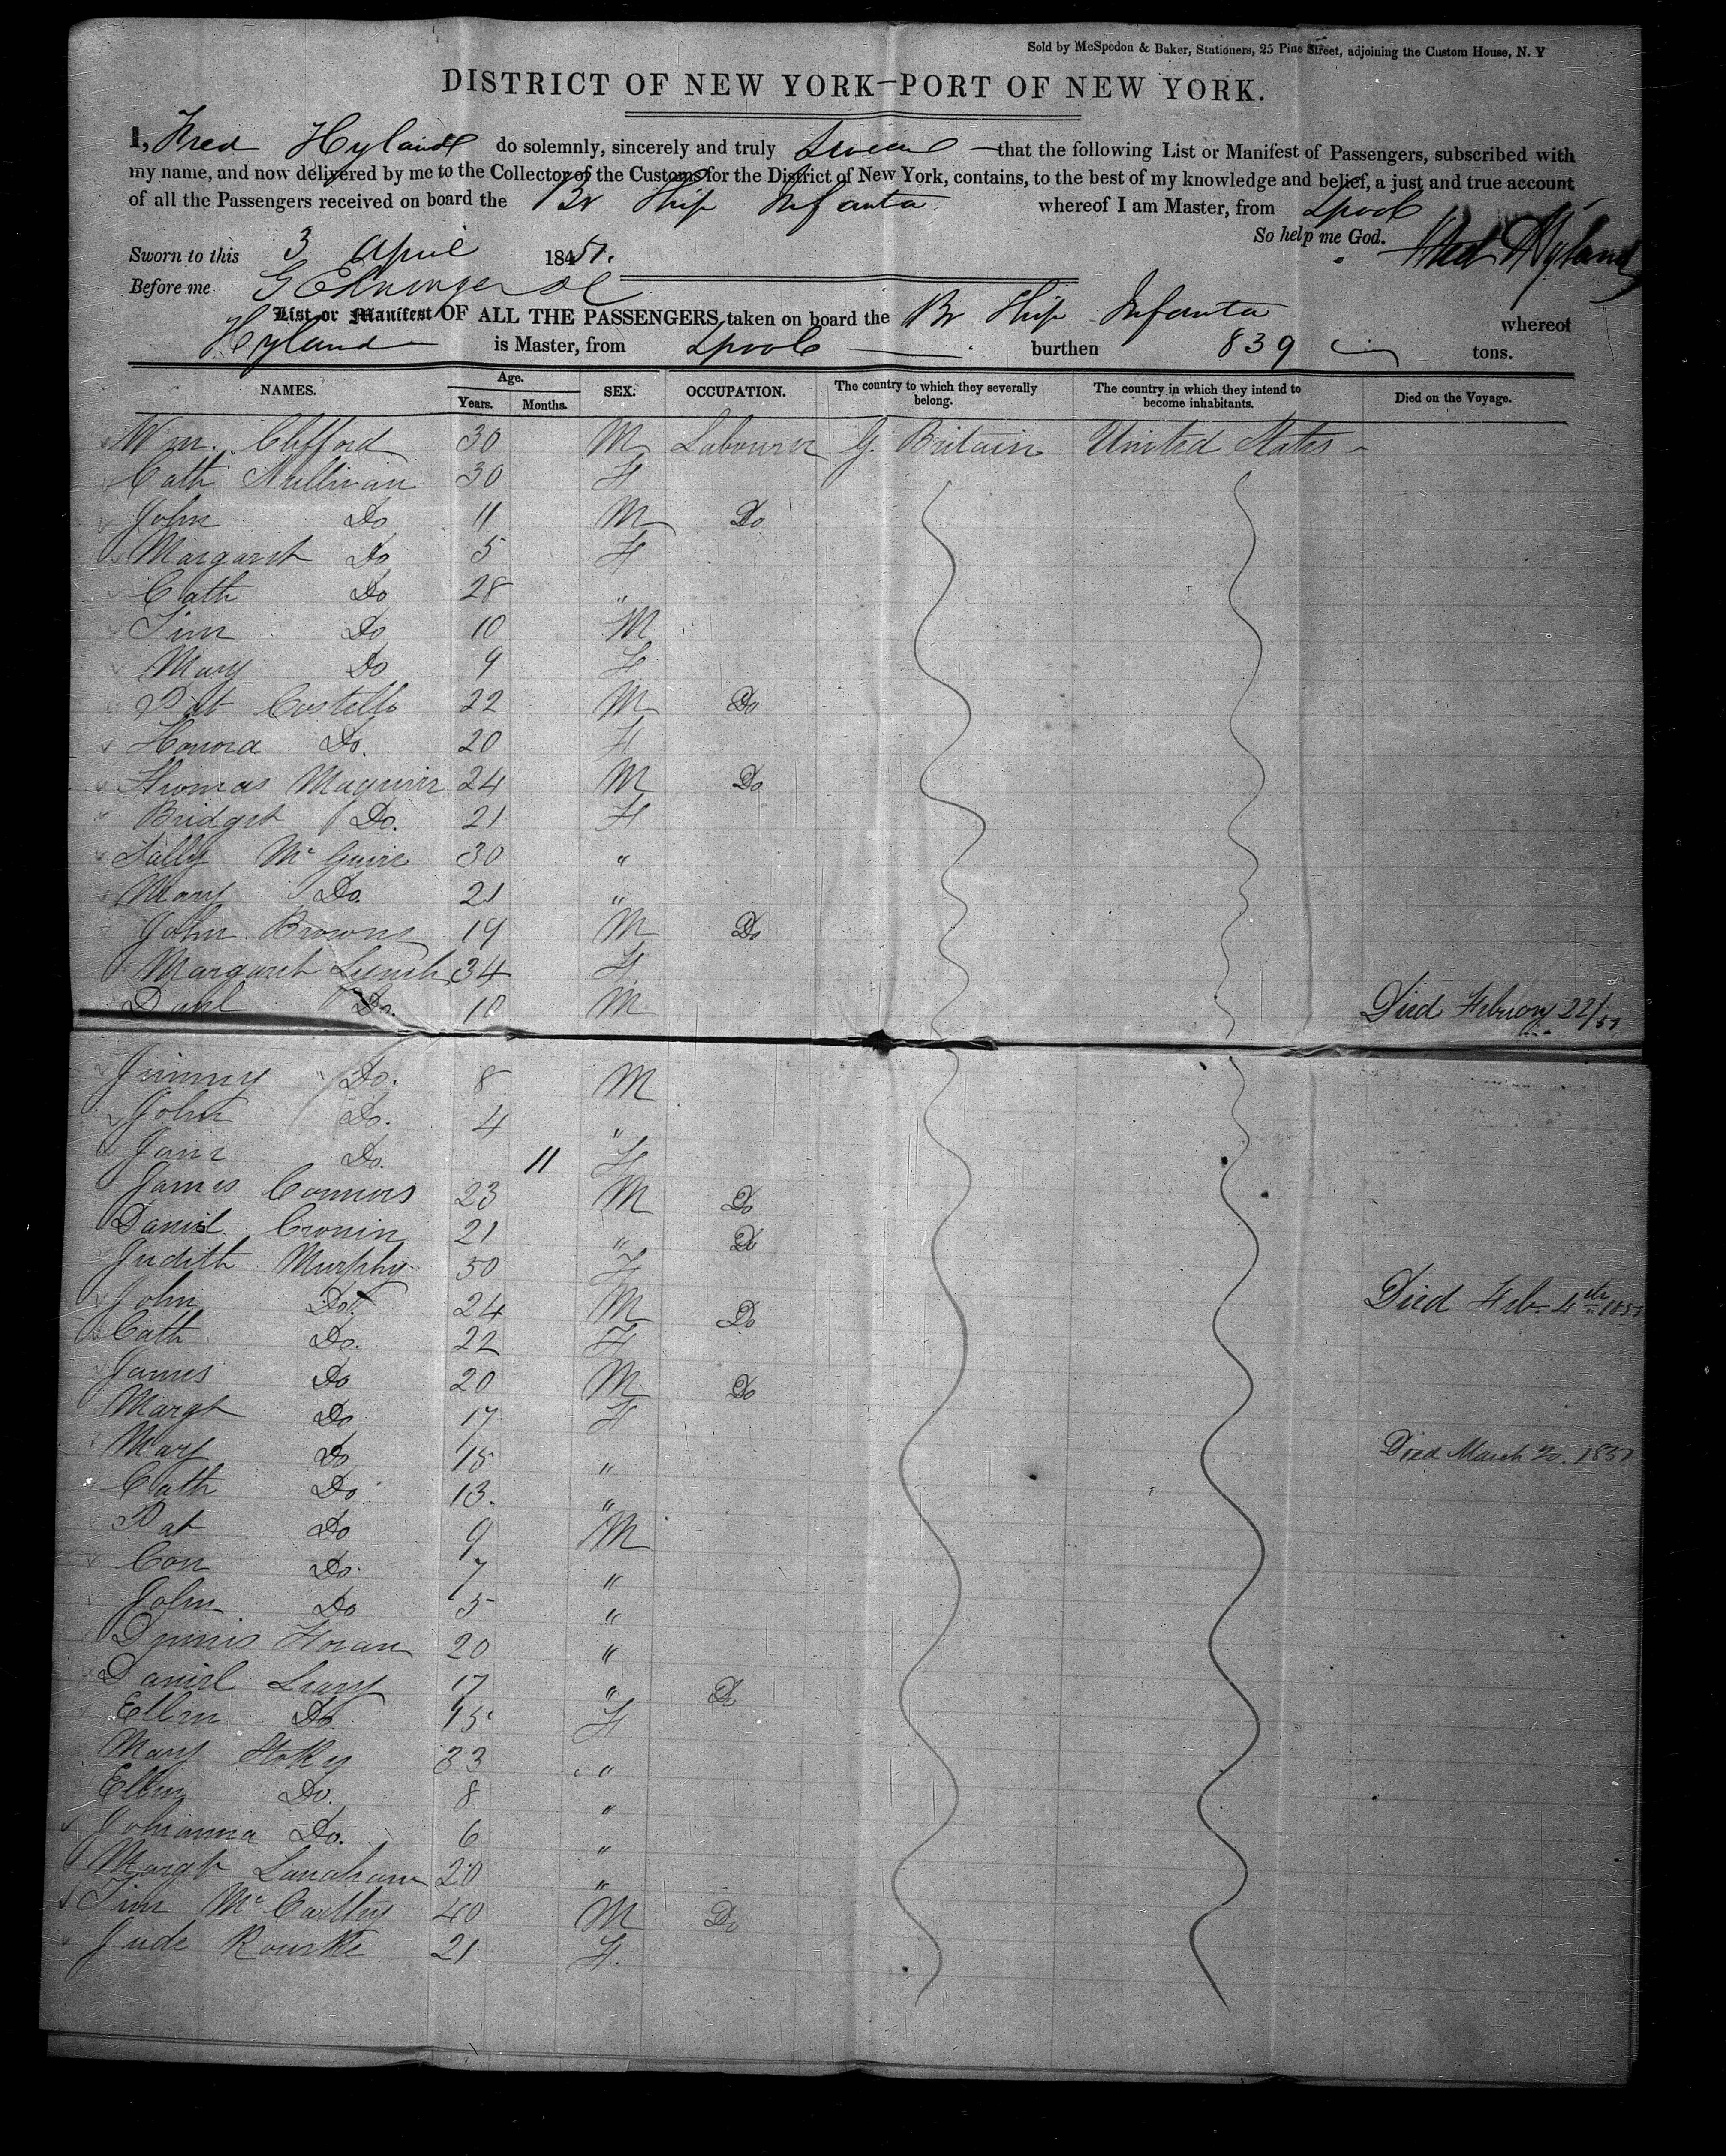 Sold by McSpedon & Baker, Stationers, 25 Pine Street, adjoining the Custom House, N. Y
DISTRICT OF NEW YORK—PORT OF NEW YORK.
I, Fred Hyland do solemnly, sincerely and truly Swear that the following List or Manifest of Passengers, subscribed with
my name, and now delivered by me to the Collector of the Customs for the District of New York, contains, to the best of my knowledge and belief, a just and true account
of all the Passengers received on board the Br Ship Infanta whereof I am Master, from Lpool
So help me God. Fred Hyland
Sworn to this 3 April 1851.
Before me
List or Manifest OF ALL THE PASSENGERS taken on board the Br Ship Infanta whereof
Hyland is Master, from Lpool burthen 839 tons.
NAMES. Age. Years. Months. SEX. OCCUPATION. The country to which they severally belong. The country in which they intend to become inhabitants. Died on the Voyage.
Wm. Clifford 30 M Labourer G. Britain United States
Cath Sullivan 30 F
John Do 11 M Do
Margaret Do 5 F
Cath Do 28 "
Tim Do 10 M
Mary Do 9 F
Pat Costello 22 M Do
Honora Do. 20 F
Thomas Maguire 24 M Do
Bridget Do. 21 F
Sally Mc Guire 30 "
Mary Do. 21 "
John Browne 19 M Do
Margaret Lynch 34 F
Danl Do. 10 M Died February 22/51
Jimmy Do. 8 M
John Do. 4 "
Jane Do. 11 F
James Connors 23 M Do
Daniel Cronin 21 " Do
Judith Murphy 50 F
John Do. 24 M Do Died Feb. 4th 1851
Cath Do. 22 F
James Do 20 M Do
Margt Do 17 F
Mary Do 15 " Died March 20. 1851
Cath Do 13. "
Pat Do 9 M
Con Do. 7 "
John Do 5 "
Dennis Horan 20 "
Daniel Leary 17 " Do
Ellen Do. 15 F
Mary Stokes 33 "
Ellen Do. 8 "
Johanna Do. 6 "
Margt Lanahan 20 "
Tim Mc Carthy 40 M Do
Jude Rourke 21 F.